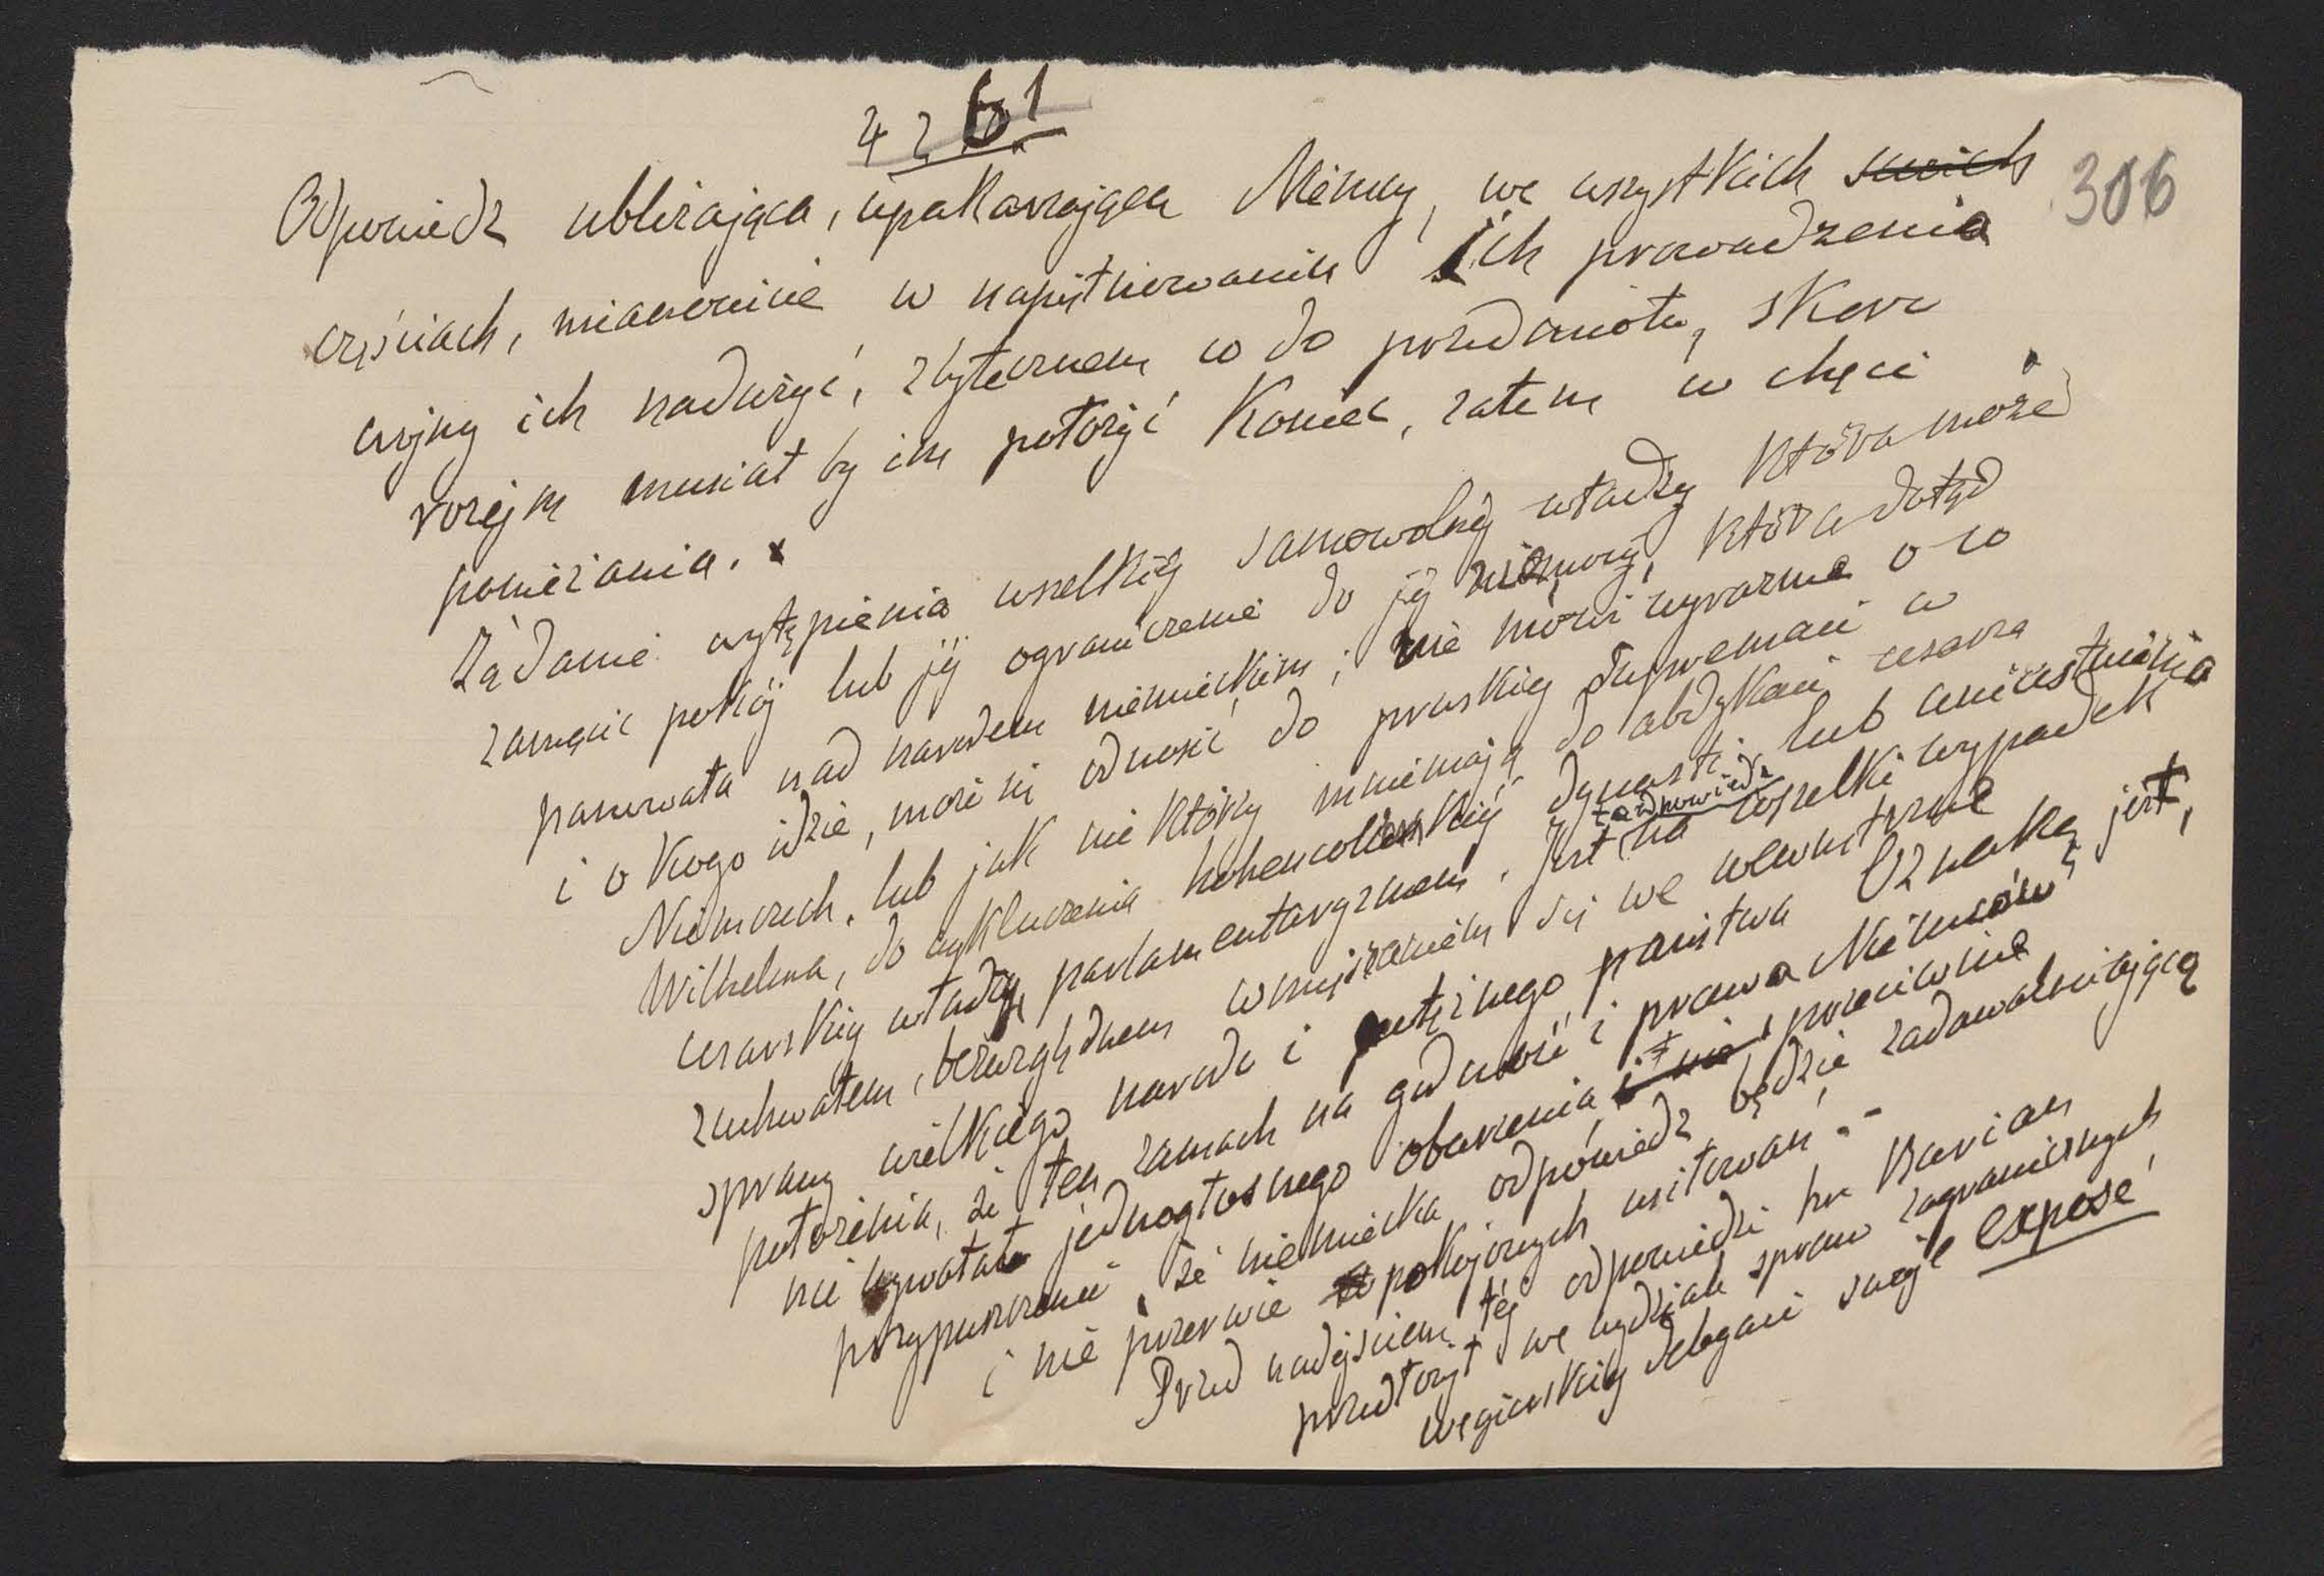 4261
306
Odpowiedz ubliżająca, upakarzająca Niemcy, we wszystkich swoich
częściach, mianowicie w napiętnowaniu ich prowadzenia
wojny ich nadużyć, zbytecznem co do przedmiotu, skoro
rozejm musiał by im położyć koniec, zatem w chęci
poniżania. x
Żądanie wytępienia wszelkiej samowolnej władzy która może
zamącić pokój lub jej ograniczenie do jej niemocy, która dotąd
panowała nad narodem niemieckim; nie mówi wyraźnie o co
i o kogo idzie, może się odnosić do pruskiej supremacii w
Niemczech, lub jak nie którzy mniemają do abdykacii cesarza
Wilhelma, do wykluczenia hohencollernskiej dynastii lub unicestwienia
cesarskiej władzy parlamentaryzmem. Jest ta odpowiedz na wszelki wypadek
zuchwałem, bezwzględnem wmięszaniem się we wewnętrzne
sprawy wielkiego narodu i potężnego państwa Oznaką jest,
położenia, że ten zamach na godność i prawa Niemców
nie wywołał jednogłosnego oburzenia, i nie przeciwnie
przypuszczenie, że niemiecka odpowiedz będzie zadowalniającą
i nie przerwie pokojowych usiłowań. -
Przed nadejściem tej odpowiedzi hr Burian
przedłożył we wydziale spraw zagranicznych
węgierskiej delegacii swoje exposé